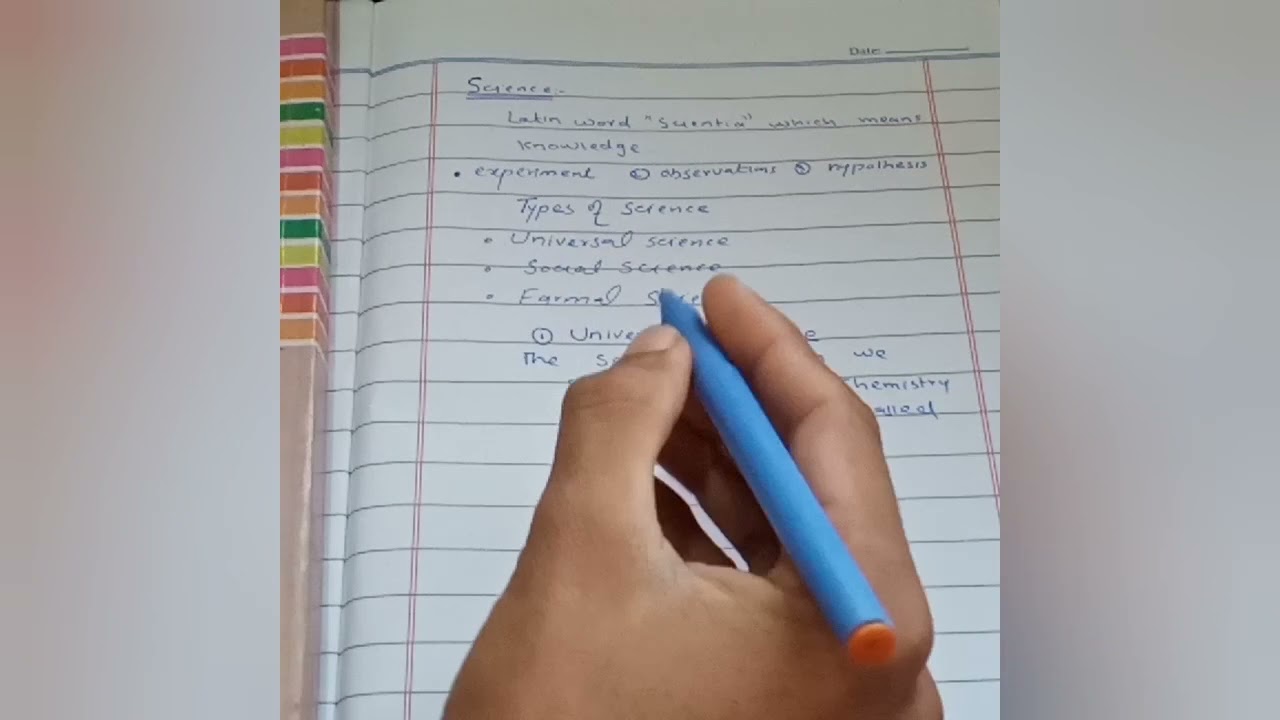 Date
Science:-
Latin word "Scientia" which means
Knowledge
• experiment ② observations ③ hypothesis
Types of Science
• Universal science
• Social Science
• Farmal
① e
The we
hemistry
alled